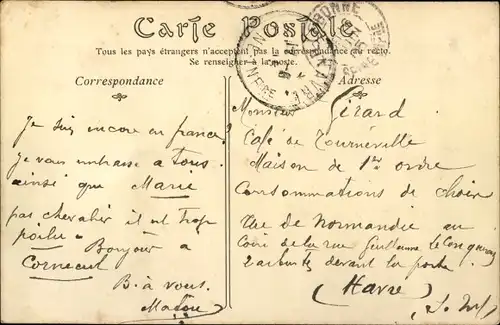 Carte Postale
Tous les pays étrangers n'acceptent pas la correspondance au recto.
Se renseigner à la poste.
Correspondance
Adresse
Je suis encore en france
je vous embrasse a tous
ainsi que Marie
pas chevalier il est trop
poilu Bonjour a
Corneuil
B. à vous
Monsieur Girard
Café de Tourneville
Maison de 1ere ordre
Consommations de choix
Rue de Normandie au
Coin de la rue Guillaume le Conquerant
2 arbustes devant la porte
(Havre) (S. Inf)